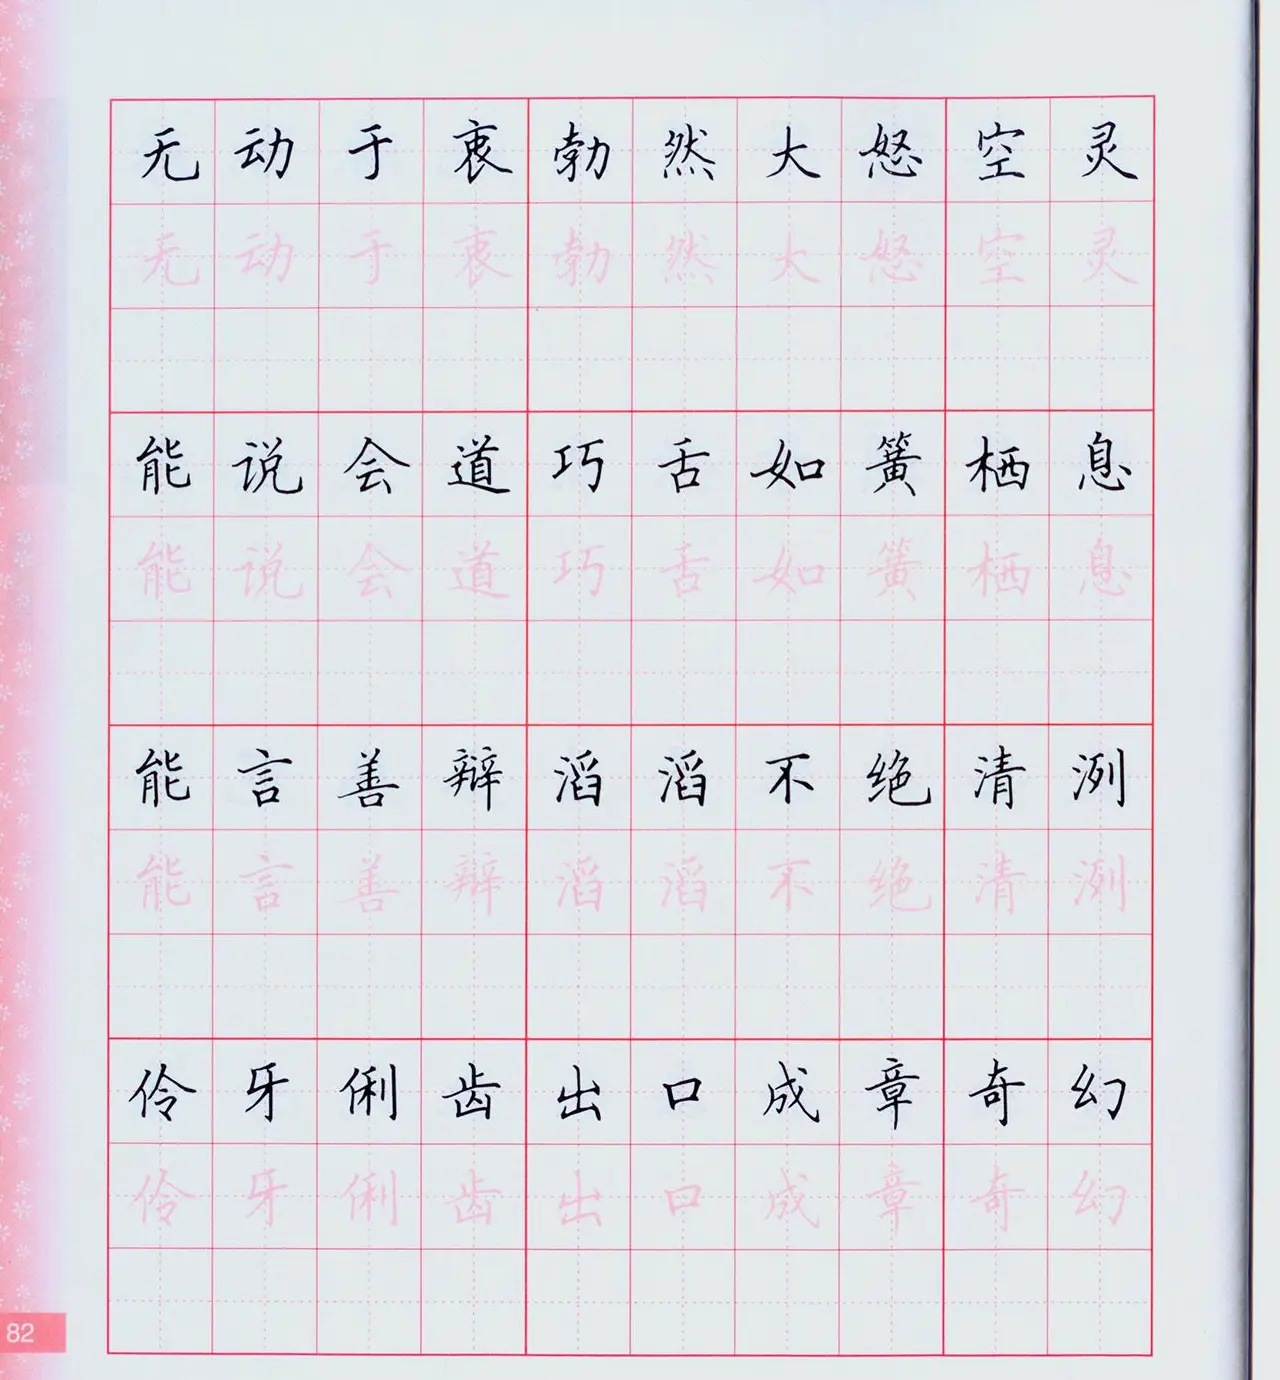 无动于衷勃然大怒空灵
无动于衷勃然大怒空灵
能说会道巧舌如簧栖息
能说会道巧舌如簧栖息
能言善辩滔滔不绝清洌
能言善辩滔滔不绝清洌
伶牙俐齿出口成章奇幻
伶牙俐齿出口成章奇幻
82